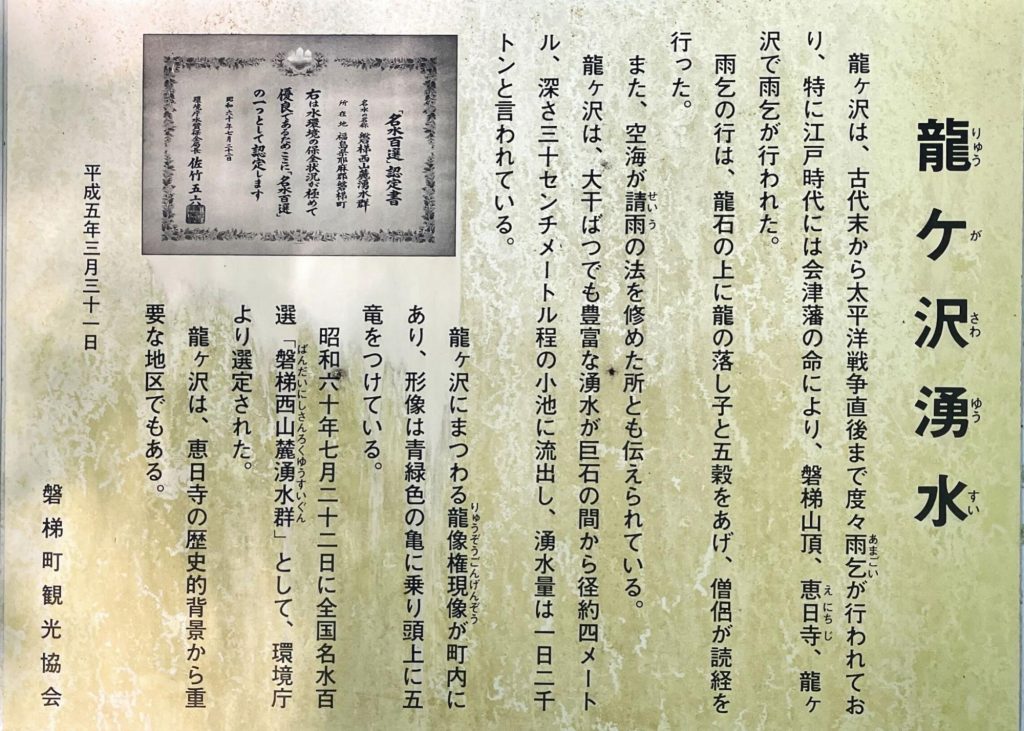 龍ヶ沢湧水
りゅう が さわ ゆう すい
龍ヶ沢は、古代末から太平洋戦争直後まで度々雨乞が行われてお
あまごい
り、特に江戸時代には会津藩の命により、磐梯山頂、恵日寺、龍ヶ
えにちじ
沢で雨乞が行われた。
雨乞の行は、龍石の上に龍の落し子と五穀をあげ、僧侶が読経を
行った。
また、空海が請雨の法を修めた所とも伝えられている。
せいう
龍ヶ沢は、大干ばつでも豊富な湧水が巨石の間から径約四メート
ル、深さ三十センチメートル程の小池に流出し、湧水量は一日二千
トンと言われている。
龍ヶ沢にまつわる龍像権現像が町内に
りゅうぞうごんげんぞう
あり、形像は青緑色の亀に乗り頭上に五
竜をつけている。
昭和六十年七月二十二日に全国名水百
選「磐梯西山麓湧水群」として、環境庁
ばんだいにしさんろくゆうすいぐん
より選定された。
龍ヶ沢は、恵日寺の歴史的背景から重
要な地区でもある。
「名水百選」認定書
名水の名称 磐梯西山麓湧水群
所在地 福島県耶麻郡磐梯町
右は水環境の保全状況が極めて
優良であるためここに、「名水百選」
の一つとして認定します
昭和六十年七月二十二日
環境庁水質保全局長 佐竹五六
平成五年三月三十一日
磐梯町観光協会